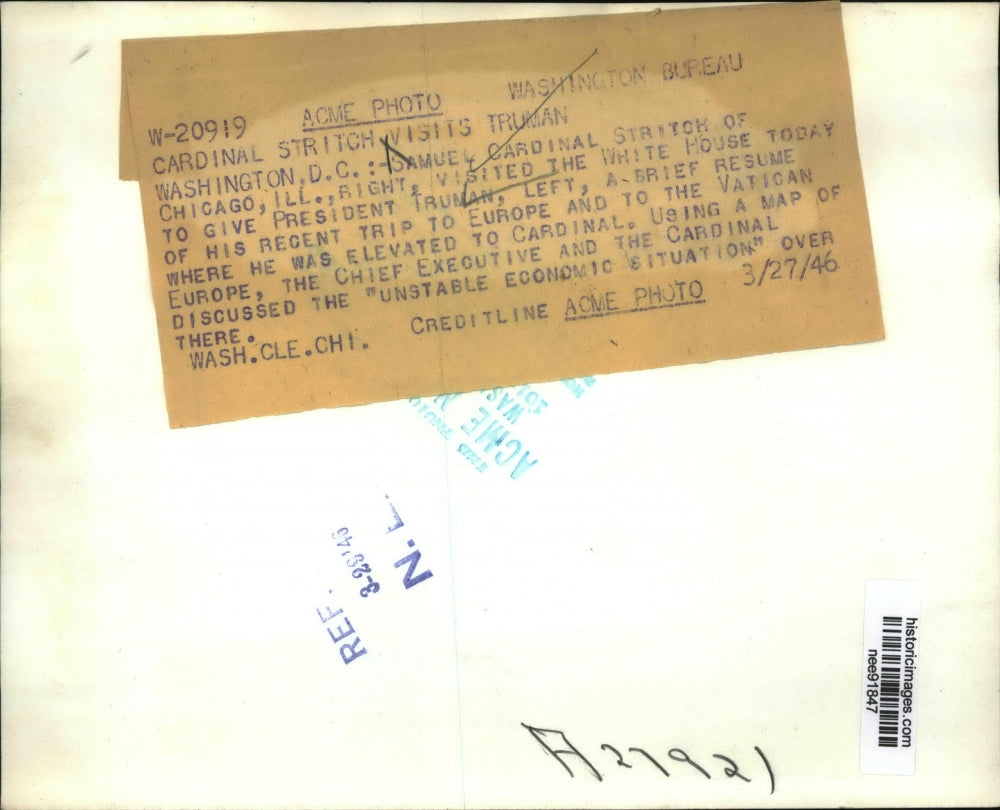 W-20919 ACME PHOTO WASHINGTON BUREAU
CARDINAL STRITCH VISITS TRUMAN
WASHINGTON.D.C.:-SAMUEL CARDINAL STRITCH OF
CHICAGO, ILL., RIGHT, VISITED THE WHITE HOUSE TODAY
TO GIVE PRESIDENT TRUMAN, LEFT, A BRIEF RESUME
OF HIS RECENT TRIP TO EUROPE AND TO THE VATICAN
WHERE HE WAS ELEVATED TO CARDINAL. USING A MAP OF
EUROPE, THE CHIEF EXECUTIVE AND THE CARDINAL
DISCUSSED THE "UNSTABLE ECONOMIC SITUATION" OVER
THERE.
WASH.CLE.CHI. CREDITLINE ACME PHOTO 3/27/46
THIS PHOTO
ACME N
WAS
REF.
N.
historicimages.com
nee91847
A27921